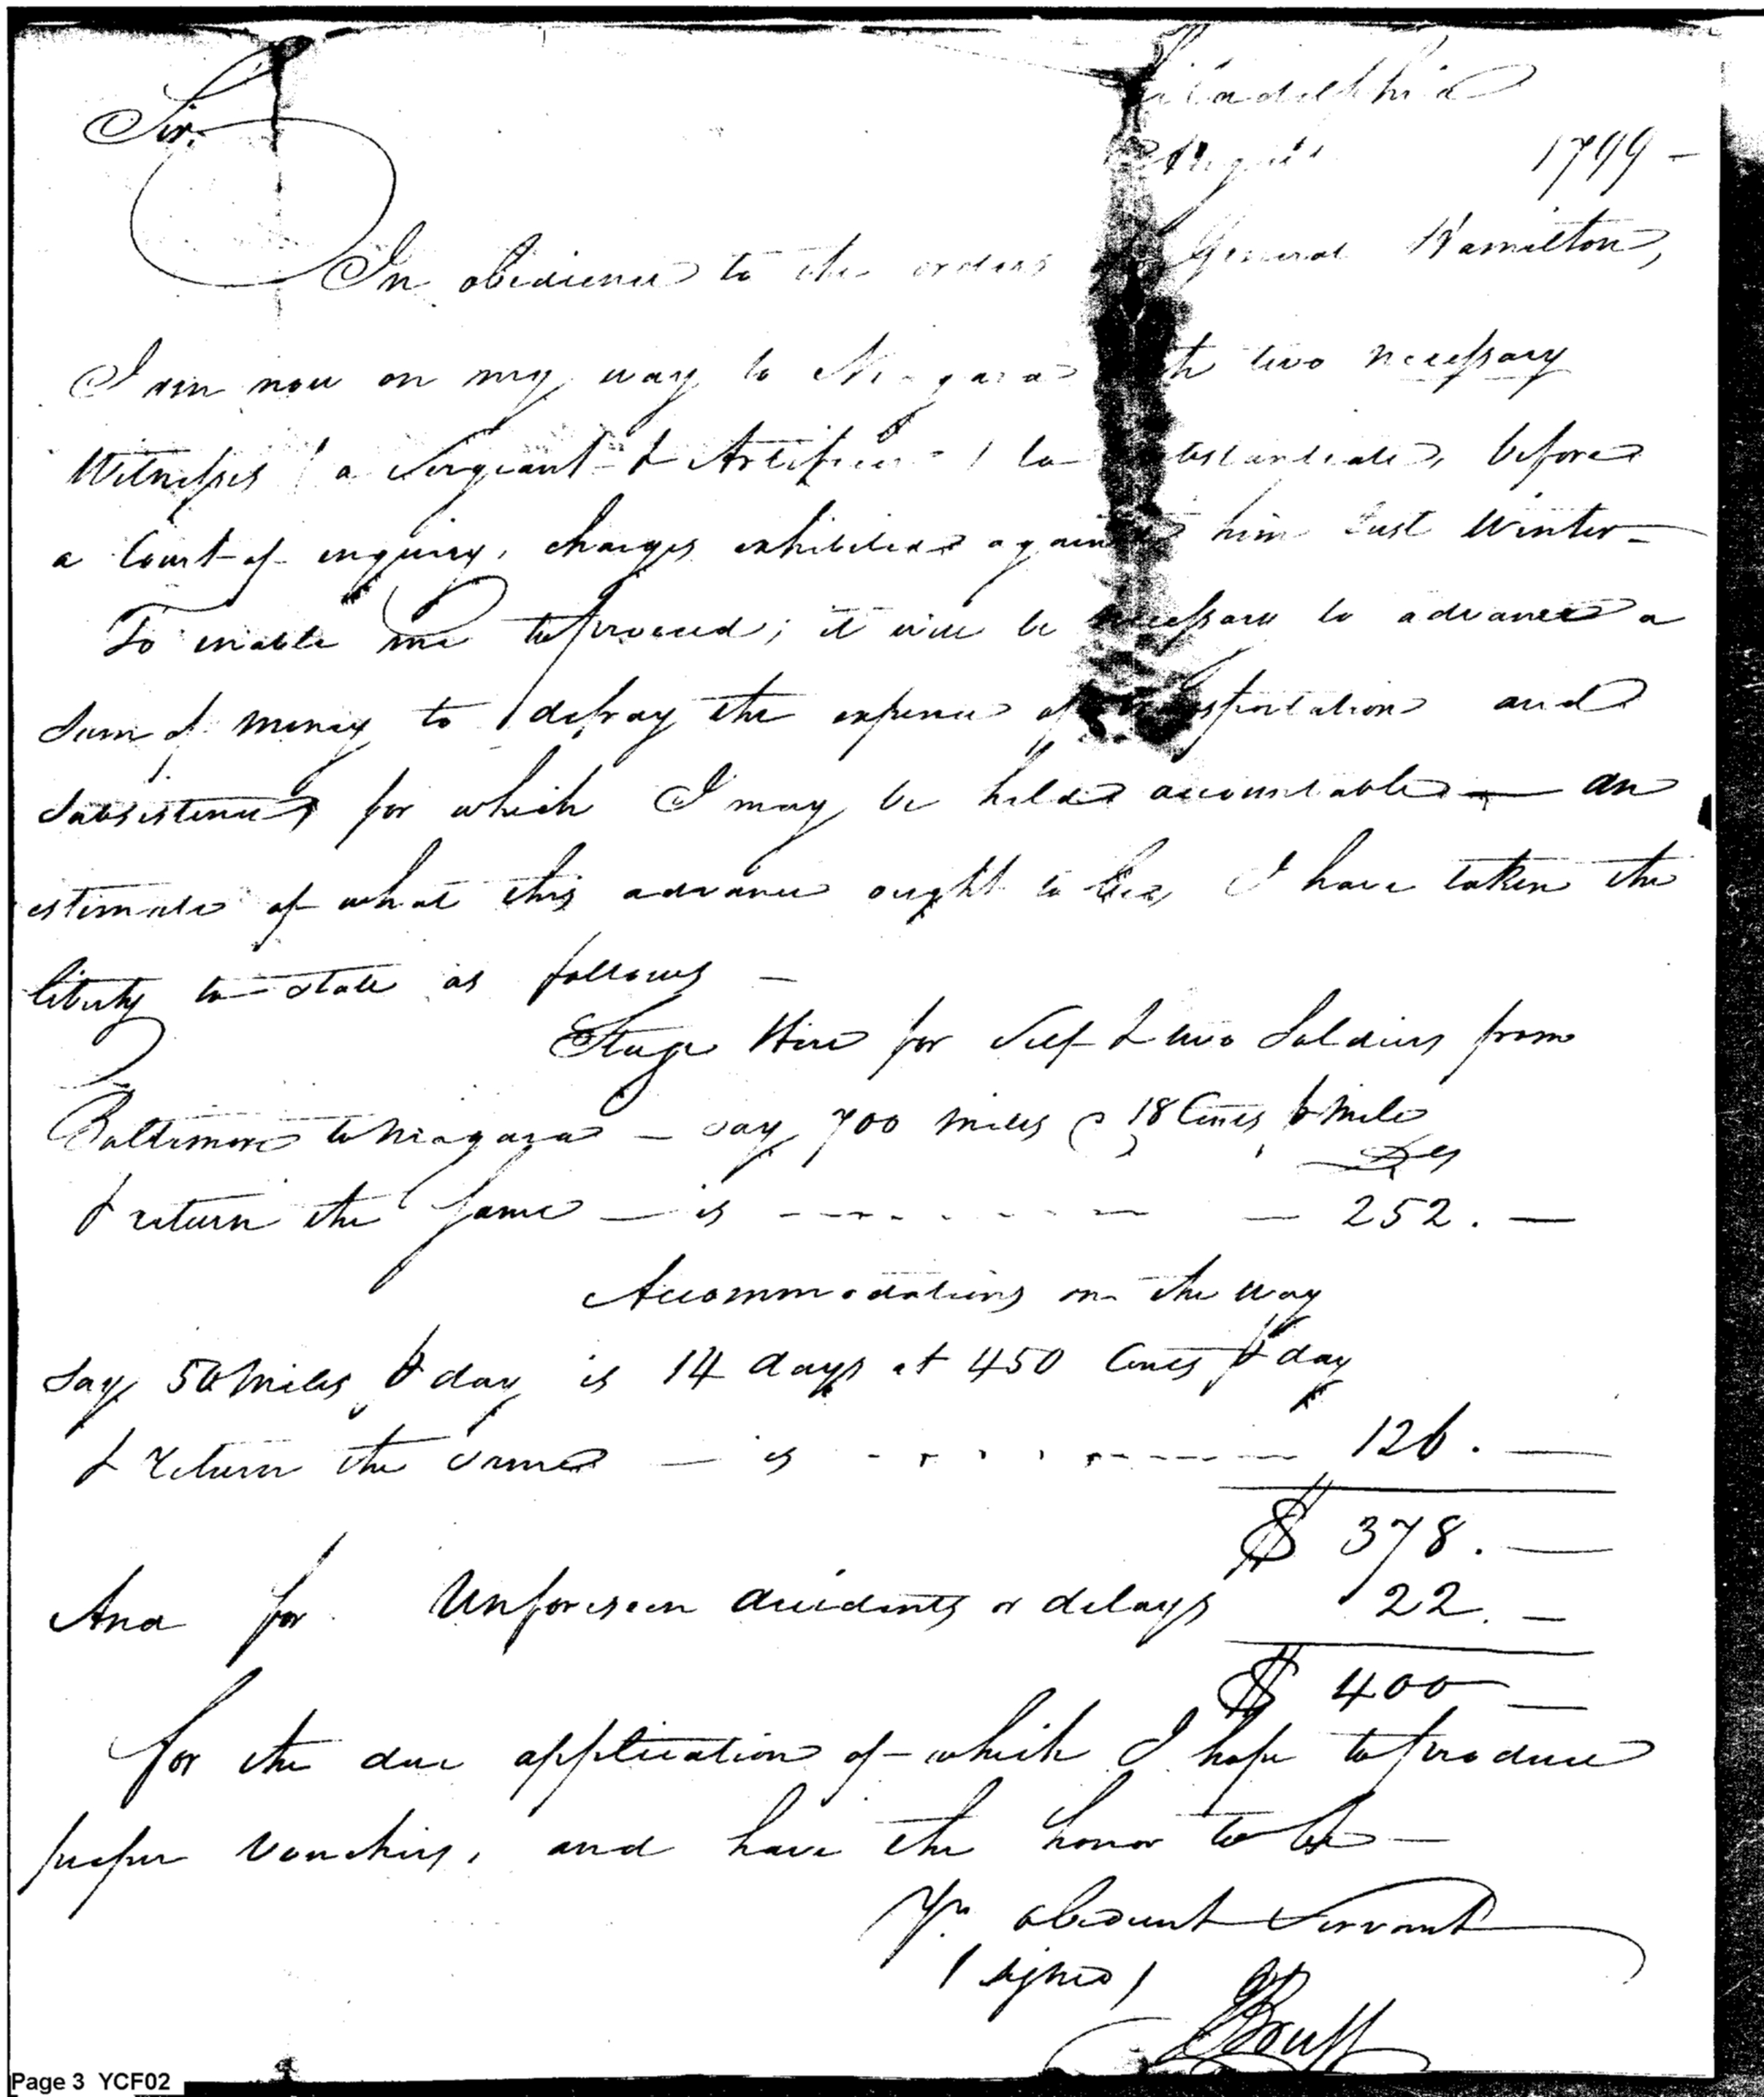 Philadelphia
Sir.
August 1799 –
In obedience to the orders General Hamilton,
I am now on my way to Niagara with two necessary
Witnesses ( a Sergeant & Artificer ) to substantiate, before
a Court of enquiry, charges exhibited against him last Winter –
To enable me to proceed; it will be necessary to advance a
Sum of Money to defray the expence of transportation and
Subsistence, for which I may be held accountable — an
estimate of what this advance ought to be, I have taken the
liberty to state as follows –
Stage Hire for Self & two Soldiers from
Baltimore to Niagara – say 700 miles @ 18 Cents ⅌ Mile
Drs
& return the same – is - - - - - - - - - 252. —
Accommodations on the way
Say 50 Miles ⅌ day is 14 days at 450 Cents ⅌ day
& return the same — is - - - - - - - - - - 126. —
$ 378. —
And for Unforeseen accidents or delays 22. —
$ 400 —
for the due application of which I hope to produce
proper Vouchers, and have the honor to be —
Yr. obedient Servant
( signed )
J Bruff
Page 3 YCF02